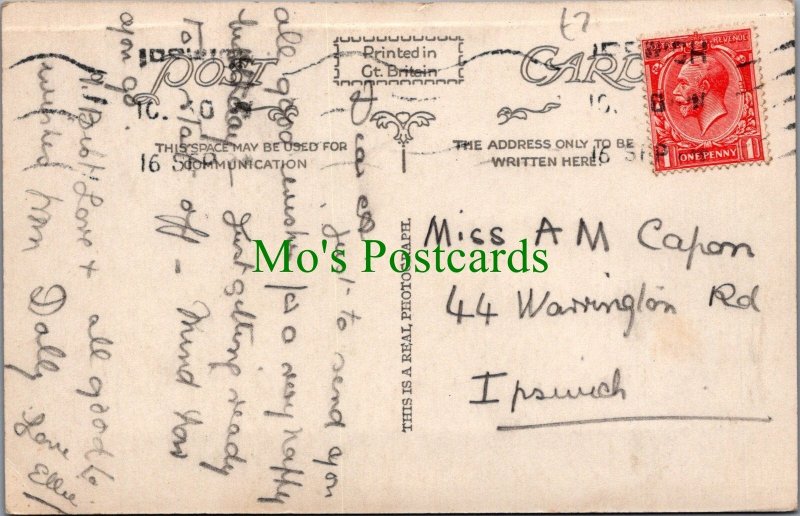 £7
POST CARD
Printed in
Gt. Britain
IPSWICH
16 SEP
IPSWICH
16 SEP
REVENUE
ONE PENNY
THIS SPACE MAY BE USED FOR
COMMUNICATION
THE ADDRESS ONLY TO BE
WRITTEN HERE
THIS IS A REAL PHOTOGRAPH.
Miss A M Capon
44 Warrington Rd
Ipswich
Just to send you
all good wishes for a very happy
Just getting ready
to off - mind you
Love & all good
wishes from Dolly
Love Ellie
Mo's Postcards